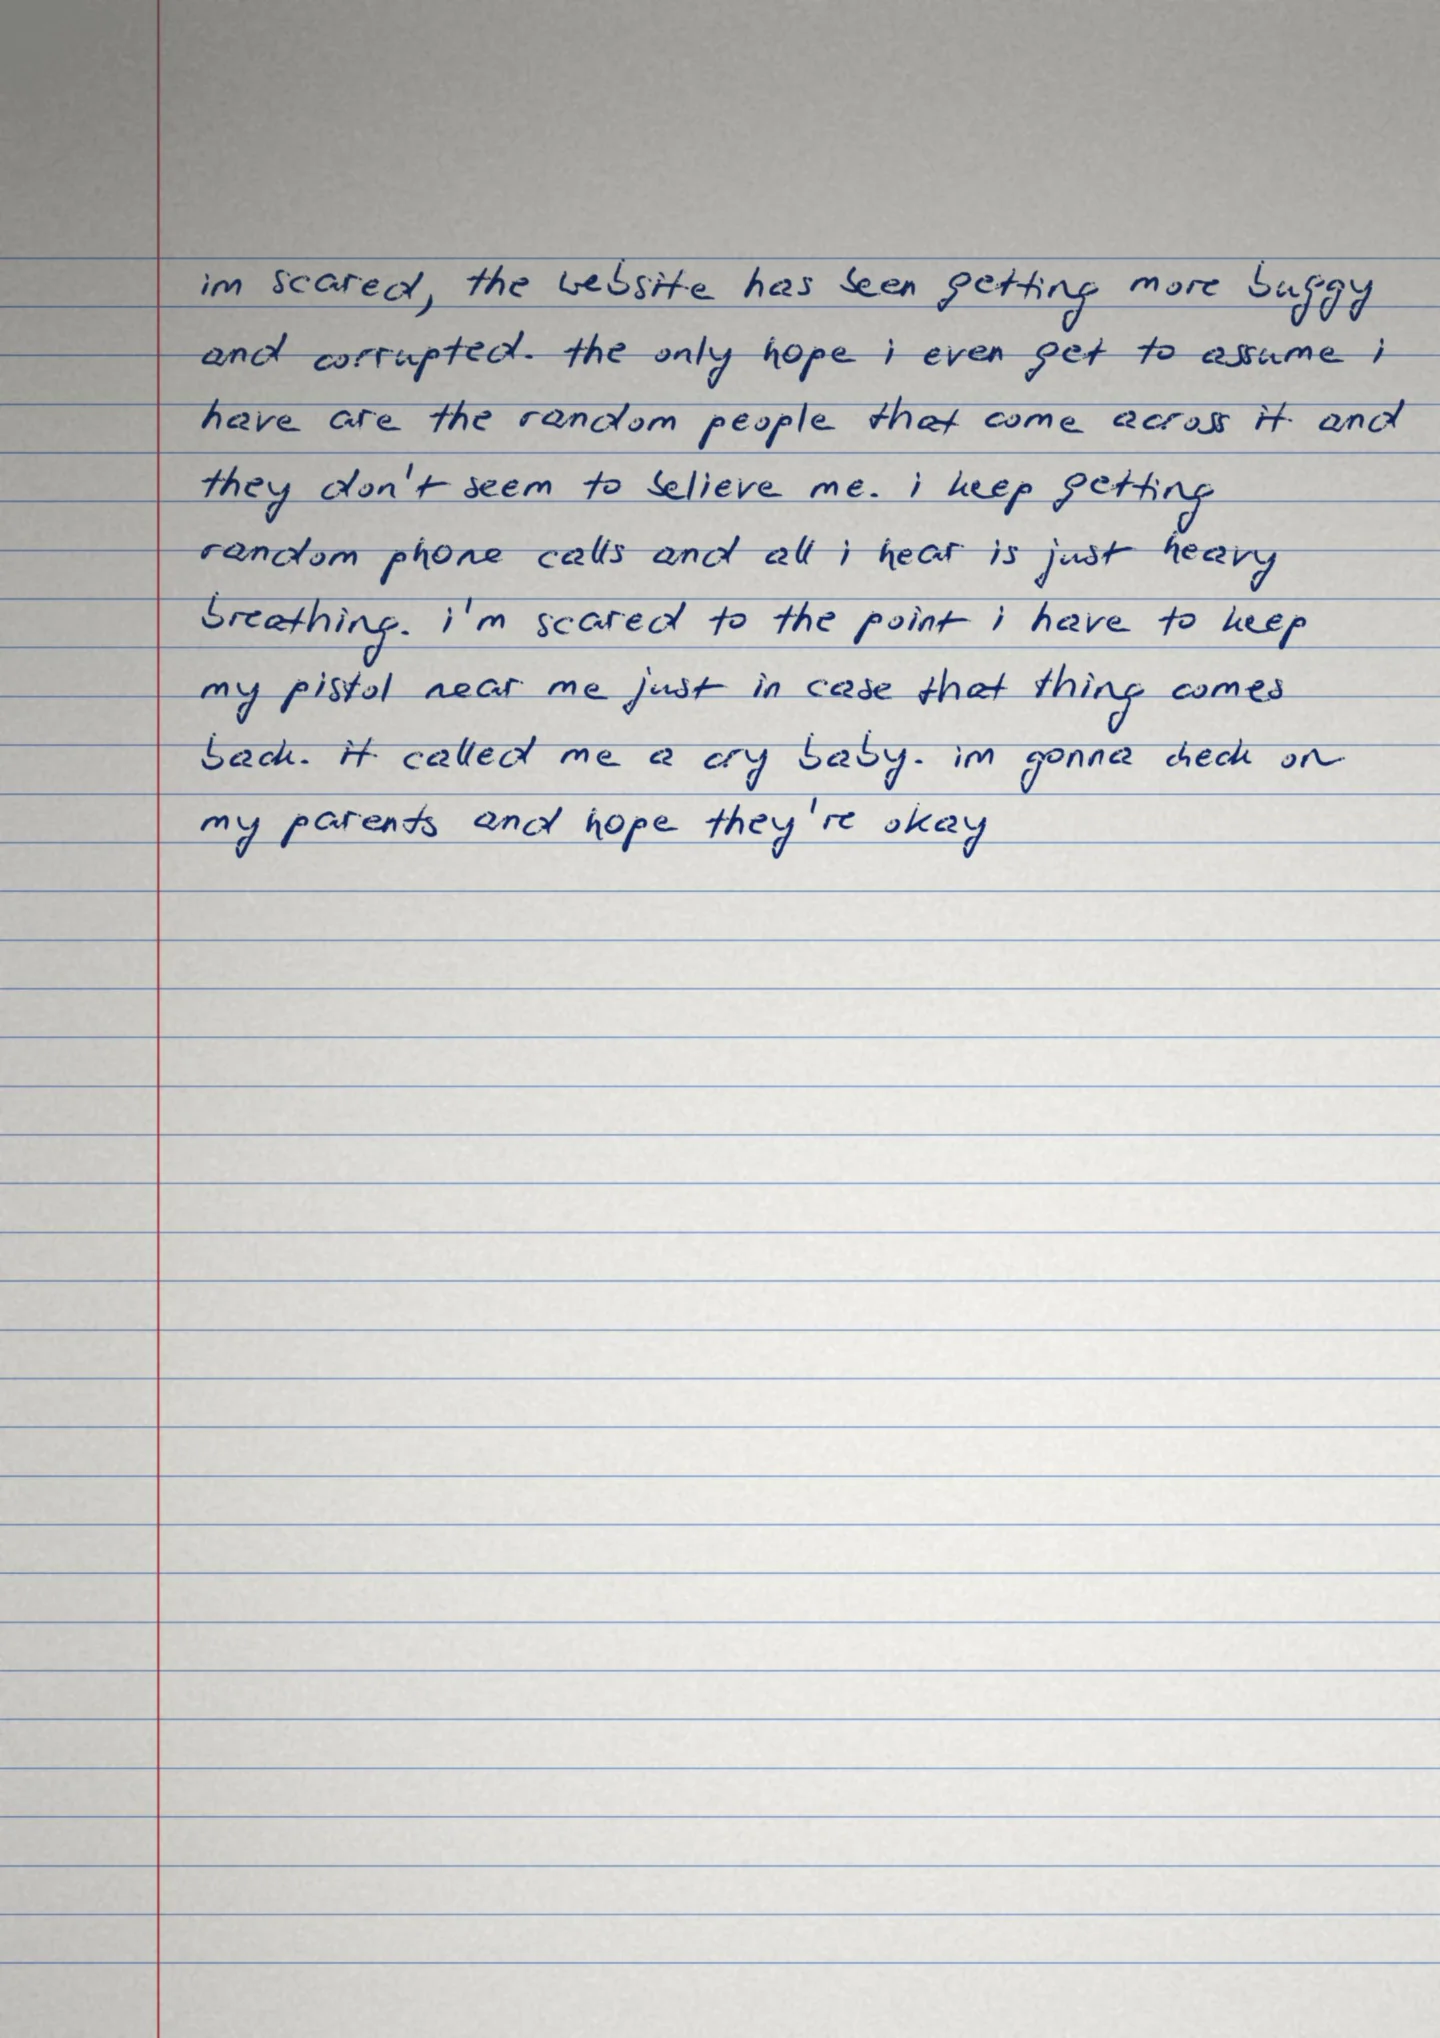 im scared, the website has been getting more buggy
and corrupted. the only hope i even get to assume i
have are the random people that come across it and
they don't seem to believe me. i keep getting
random phone calls and all i hear is just heavy
breathing. i'm scared to the point i have to keep
my pistol near me just in case that thing comes
back. it called me a cry baby. im gonna check on
my parents and hope they're okay